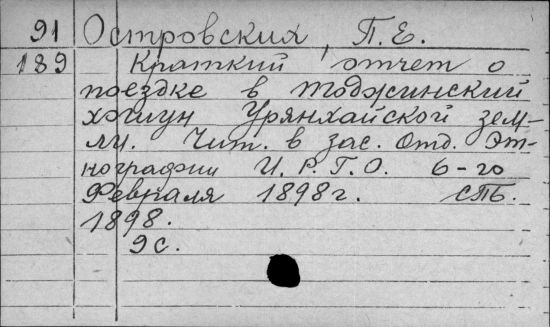 91 Островских, П.Е.
189 Краткий отчет о
поездке в Тоджинский
хошун Урянхайской зем-
ли. Чит. в зас. Отд. Эт-
нографии И.Р.Г.О. 6-го
Февраля 1898г. СПБ.
1898.
9с.